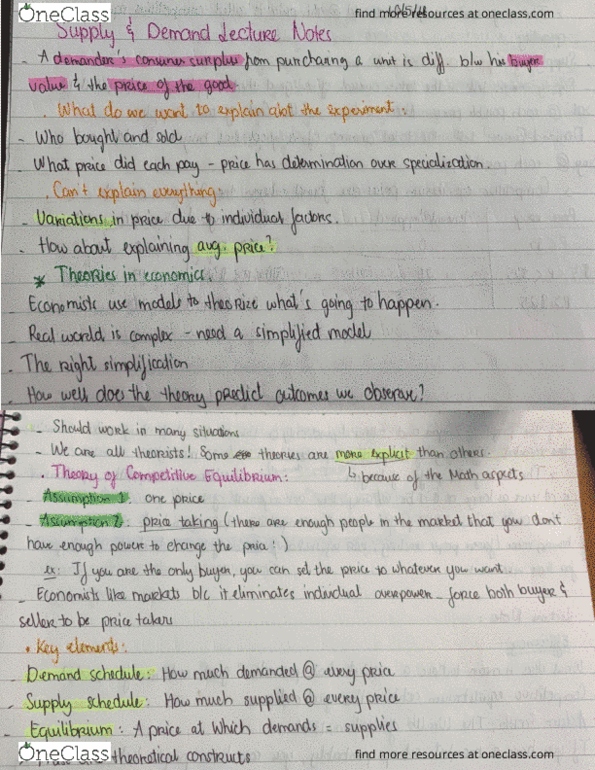 OneClass
find more resources at oneclass.com
Supply & Demand Lecture Notes
- A demander's consumer surplus from purchasing a unit is diff. b/w his buyer
value & the price of the good
. What do we want to explain abt the experiment:
- Who bought and sold
- What price did each pay - price has determination over specialization.
. Can't explain everything
- Variations in price due to individual factors.
- How about explaining avg. price?
* Theories in economics.
- Economists use models to theorize what's going to happen.
- Real world is complex - need a simplified model
- The right simplification
- How well does the theory predict outcomes we observe?
- Should work in many situations
- We are all theorists! Some theories are more explicit than others.
↳ because of the Math aspects
• Theory of Competitive Equilibrium:
- Assumption 1: one price
- Assumption 2: price taking (there are enough people in the market that you don't
have enough power to change the price :)
ex: If you are the only buyer, you can set the price to whatever you want
- Economists like markets b/c it eliminates individual overpower - force both buyer &
seller to be price takers
• Key elements:
- Demand schedule: How much demanded @ every price
- Supply schedule: How much supplied @ every price
- Equilibrium: A price at which demands = supplies
theoretical constructs
OneClass
find more resources at oneclass.com